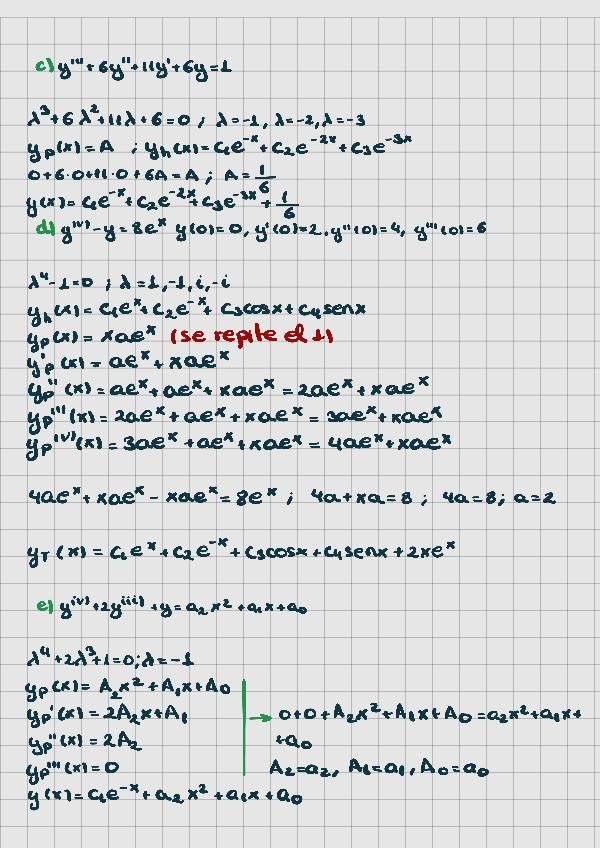 c) y''' + 6y'' + 11y' + 6y = 1
λ³ + 6λ² + 11λ + 6 = 0 ; λ = -1, λ = -2, λ = -3
yp(x) = A ; yh(x) = c₁e⁻ˣ + c₂e⁻²ˣ + c₃e⁻³ˣ
0 + 6·0 + 11·0 + 6A = A ; A = 1/6
y(x) = c₁e⁻ˣ + c₂e⁻²ˣ + c₃e⁻³ˣ + 1/6
d) y⁽ᴵⱽ⁾ - y = 8eˣ y(0) = 0, y'(0) = 2, y''(0) = 4, y'''(0) = 6
λ⁴ - 1 = 0 ; λ = 1, -1, i, -i
yh(x) = c₁eˣ + c₂e⁻ˣ + c₃cosx + c₄senx
yp(x) = xaeˣ (se repite el 1)
y'p(x) = aeˣ + xaeˣ
yp''(x) = aeˣ + aeˣ + xaeˣ = 2aeˣ + xaeˣ
yp'''(x) = 2aeˣ + aeˣ + xaeˣ = 3aeˣ + xaeˣ
yp⁽ᴵⱽ⁾(x) = 3aeˣ + aeˣ + xaeˣ = 4aeˣ + xaeˣ
4aeˣ + xaeˣ - xaeˣ = 8eˣ ; 4a + xa = 8 ; 4a = 8 ; a = 2
yT(x) = c₁eˣ + c₂e⁻ˣ + c₃cosx + c₄senx + 2xeˣ
e) y⁽ⁱᵛ⁾ + 2y⁽ⁱⁱⁱ⁾ + y = a₂x² + a₁x + a₀
λ⁴ + 2λ³ + 1 = 0 ; λ = -1
yp(x) = A₂x² + A₁x + A₀
yp'(x) = 2A₂x + A₁
yp''(x) = 2A₂
yp'''(x) = 0
→ 0 + 0 + A₂x² + A₁x + A₀ = a₂x² + a₁x +
+ a₀
A₂ = a₂, A₁ = a₁, A₀ = a₀
y(x) = c₁e⁻ˣ + a₂x² + a₁x + a₀